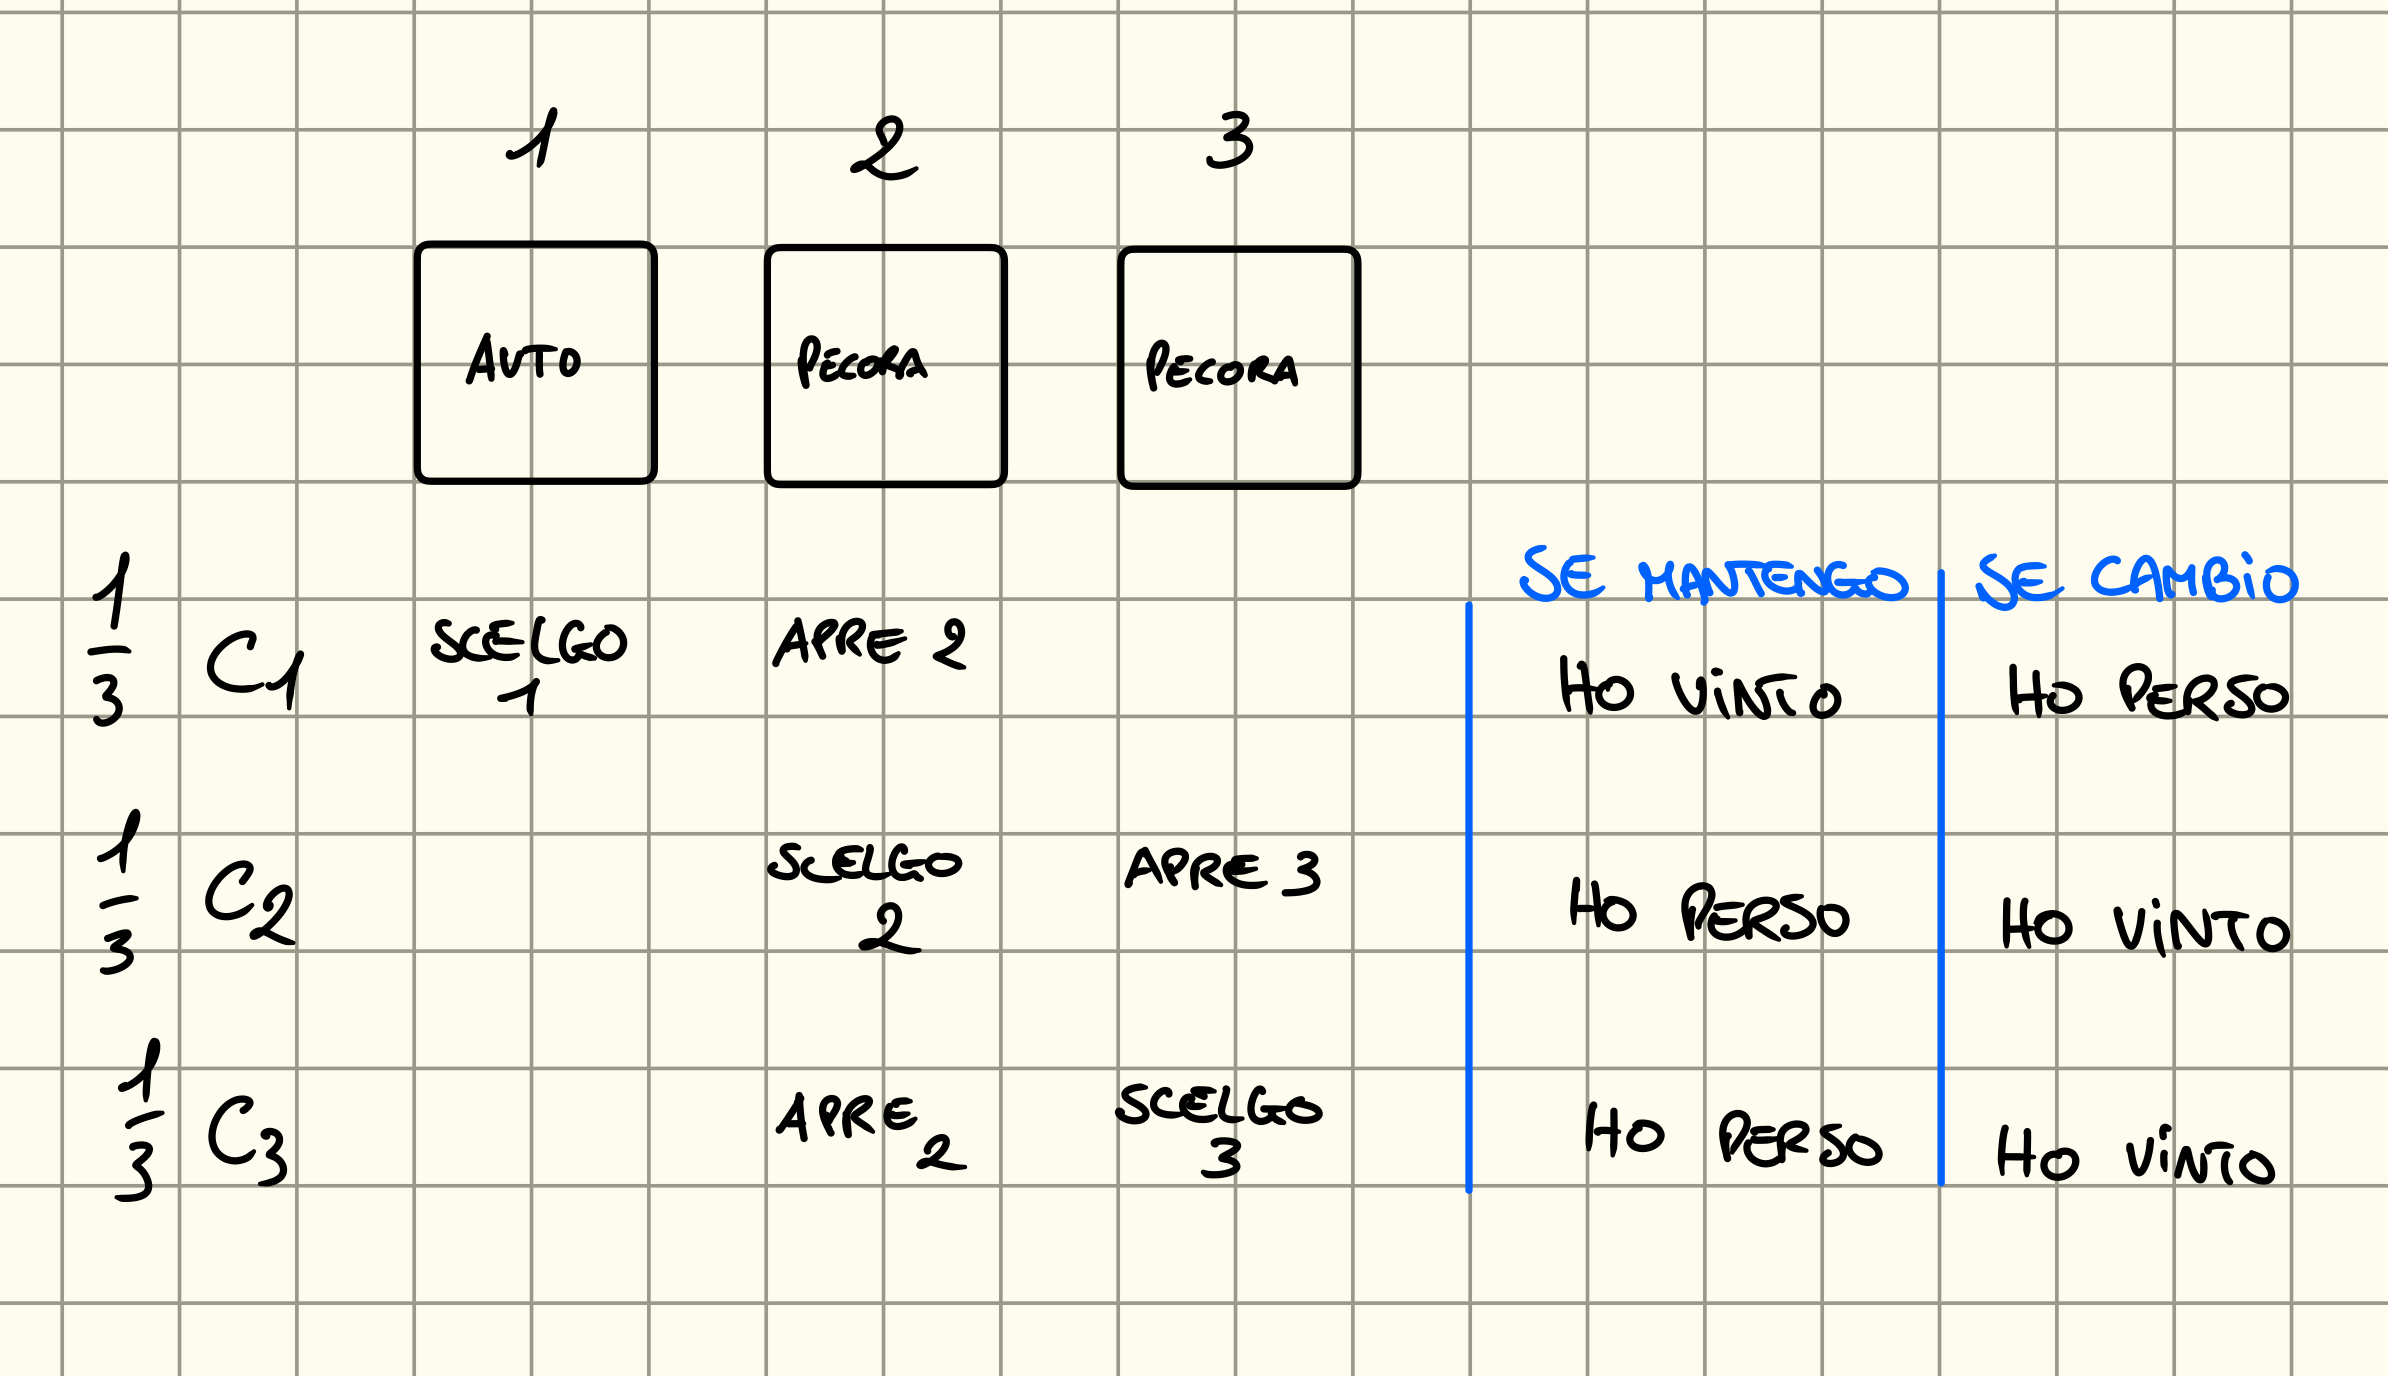 1 2 3
AUTO PECORA PECORA
SE MANTENGO SE CAMBiO
1/3 C1 SCELGO 1 APRE 2 HO ViNTO HO PERSO
1/3 C2 SCELGO 2 APRE 3 HO PERSO HO ViNTO
1/3 C3 APRE 2 SCELGO 3 HO PERSO HO ViNTO